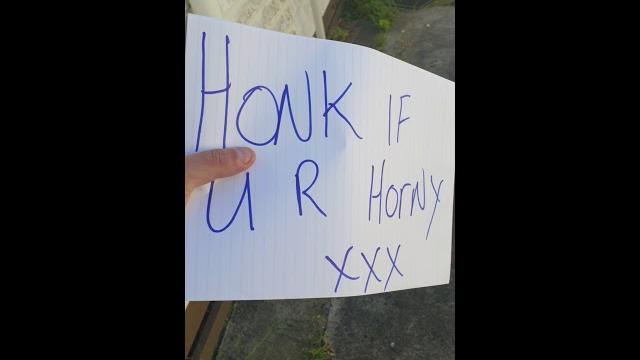 HONK IF
U R HorNY
XXX